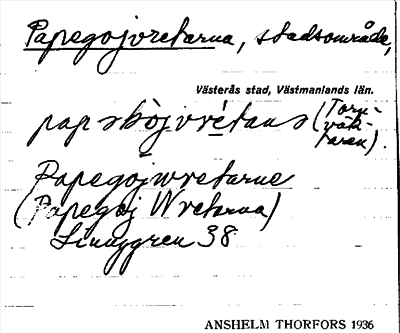 Papegojvretarna, stadsområde,
Västerås stad, Västmanlands län.
papskòjvrétans (Torn-
väk-
taren).
Papegojwretarne
(Papegoj Wretarna)
Linnggren 38
ANSHELM THORFORS 1936